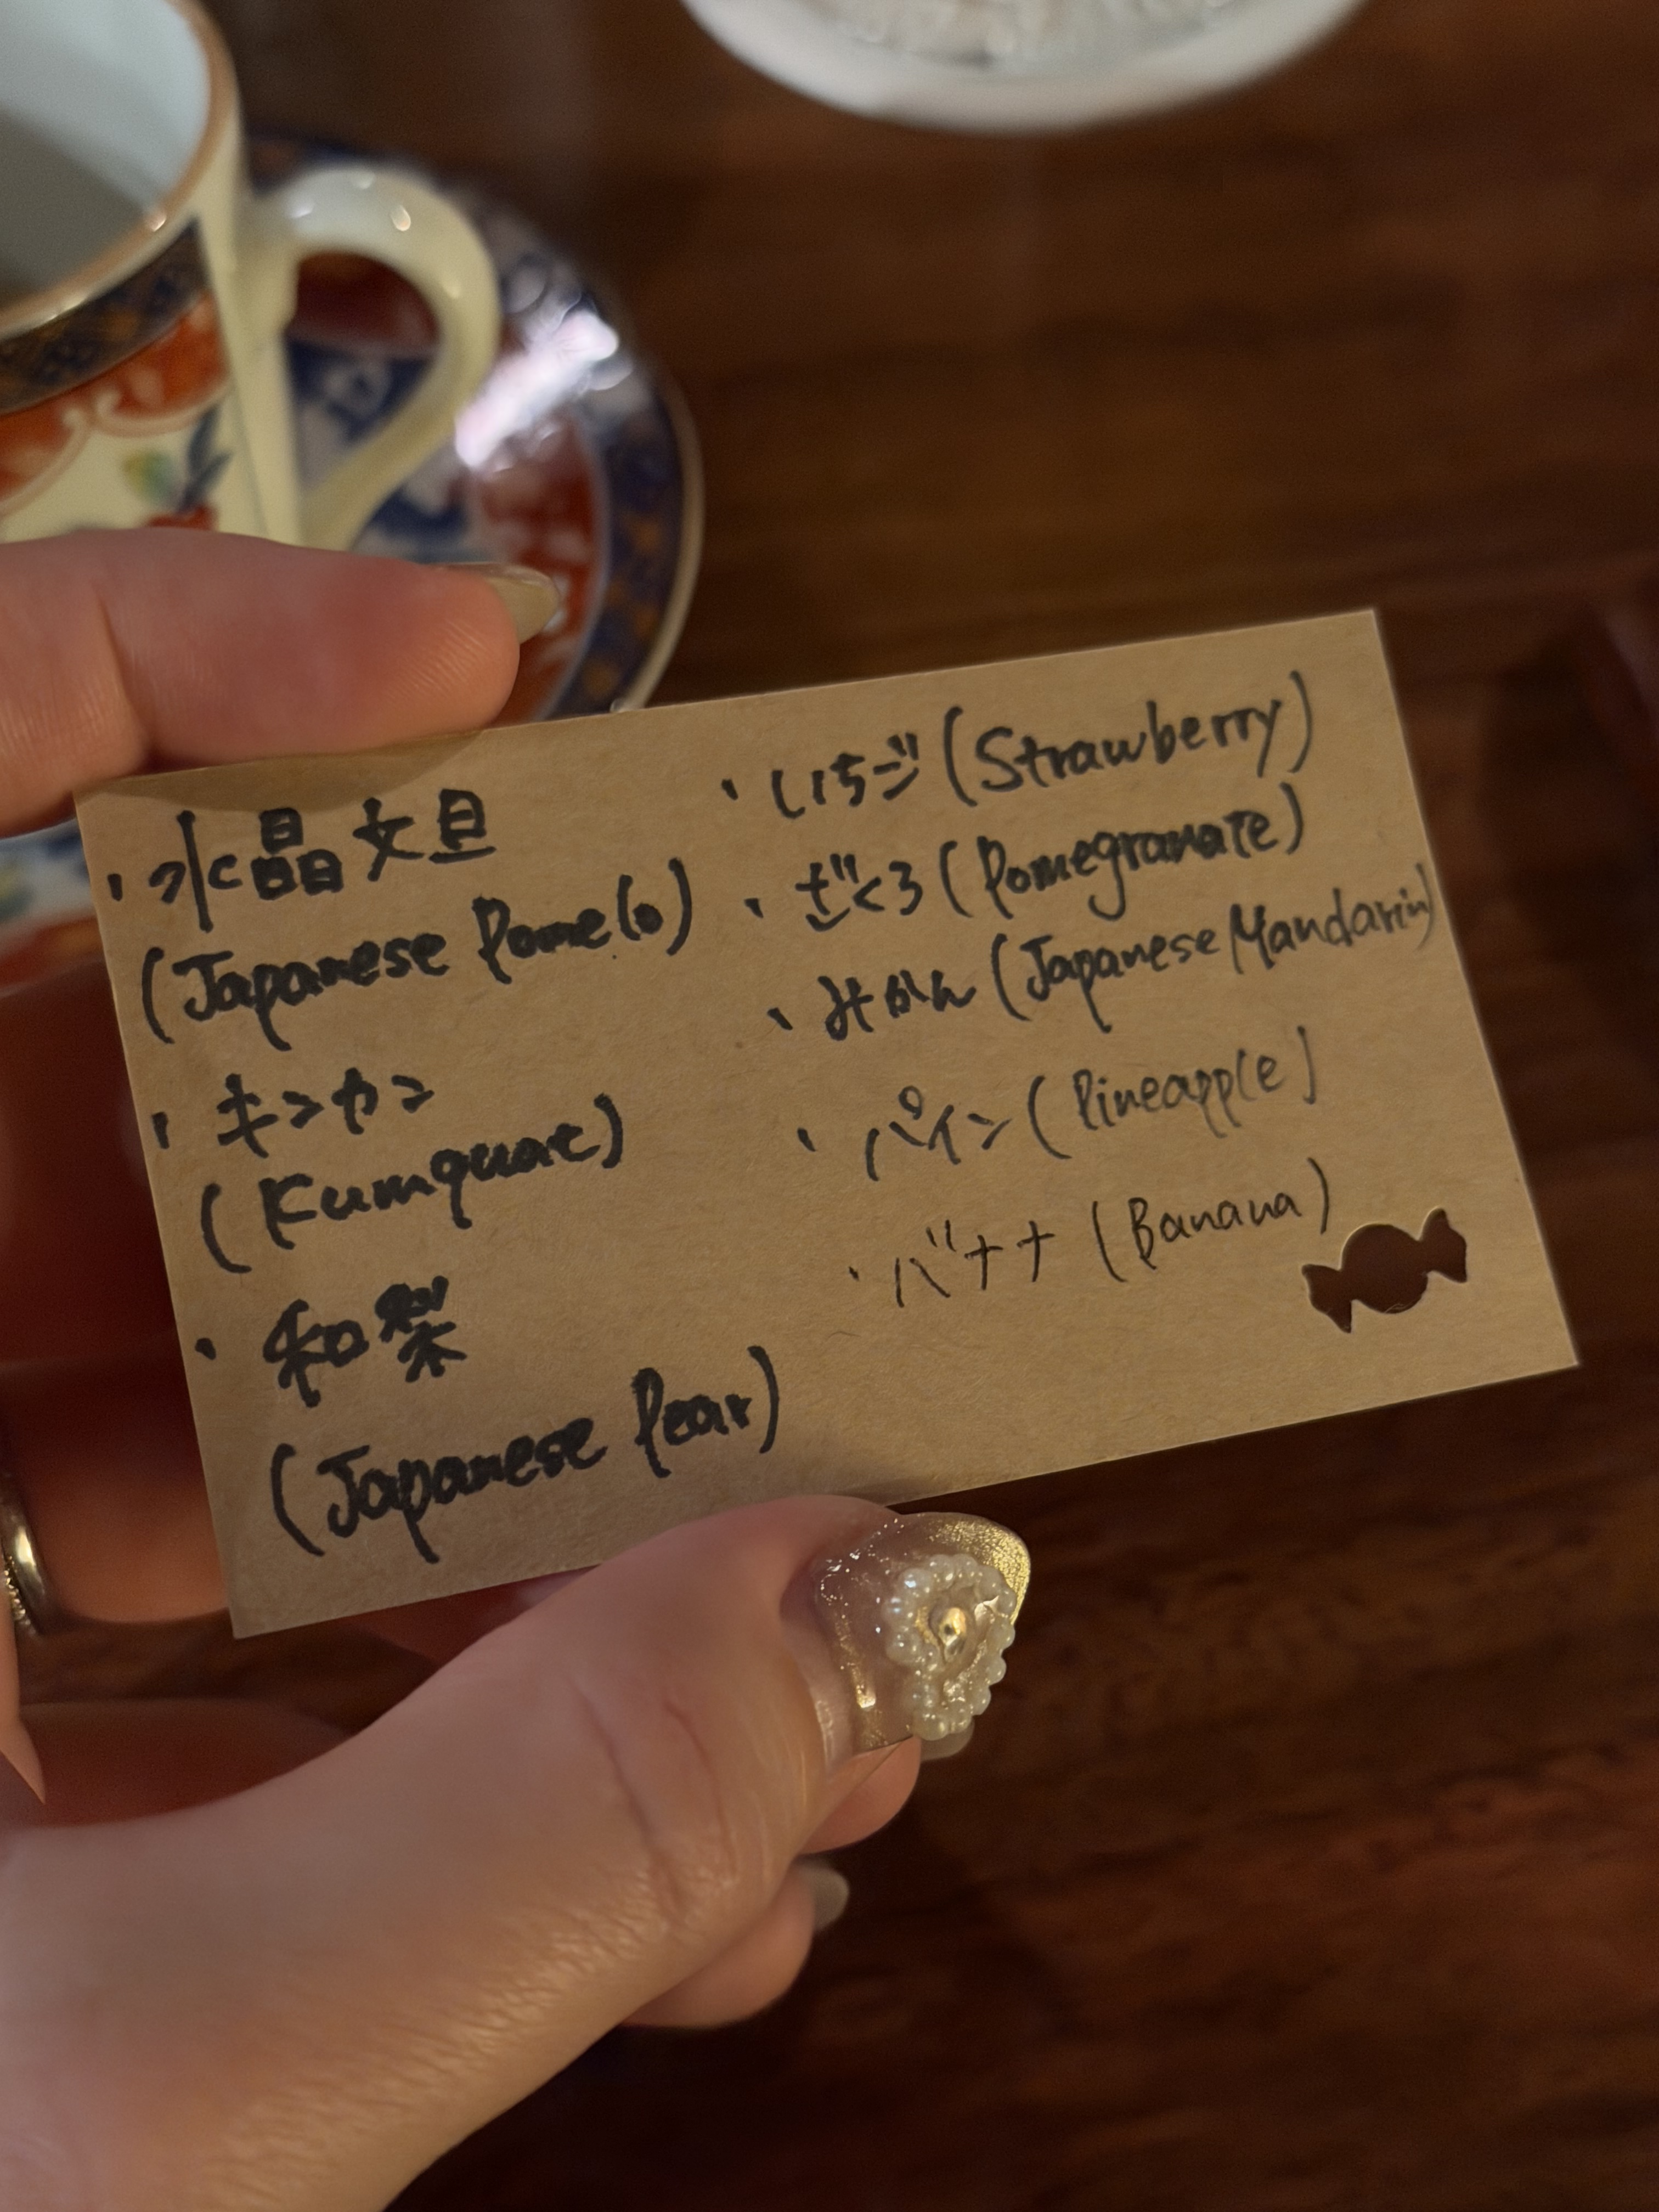 ・水晶文旦
(Japanese Pomelo)
・キンカン
(Kumquat)
・和梨
(Japanese Pear)
・いちご(Strawberry)
・ざくろ(Pomegranate)
・みかん(Japanese Mandarin)
・パイン(Pineapple)
・バナナ(Banana)